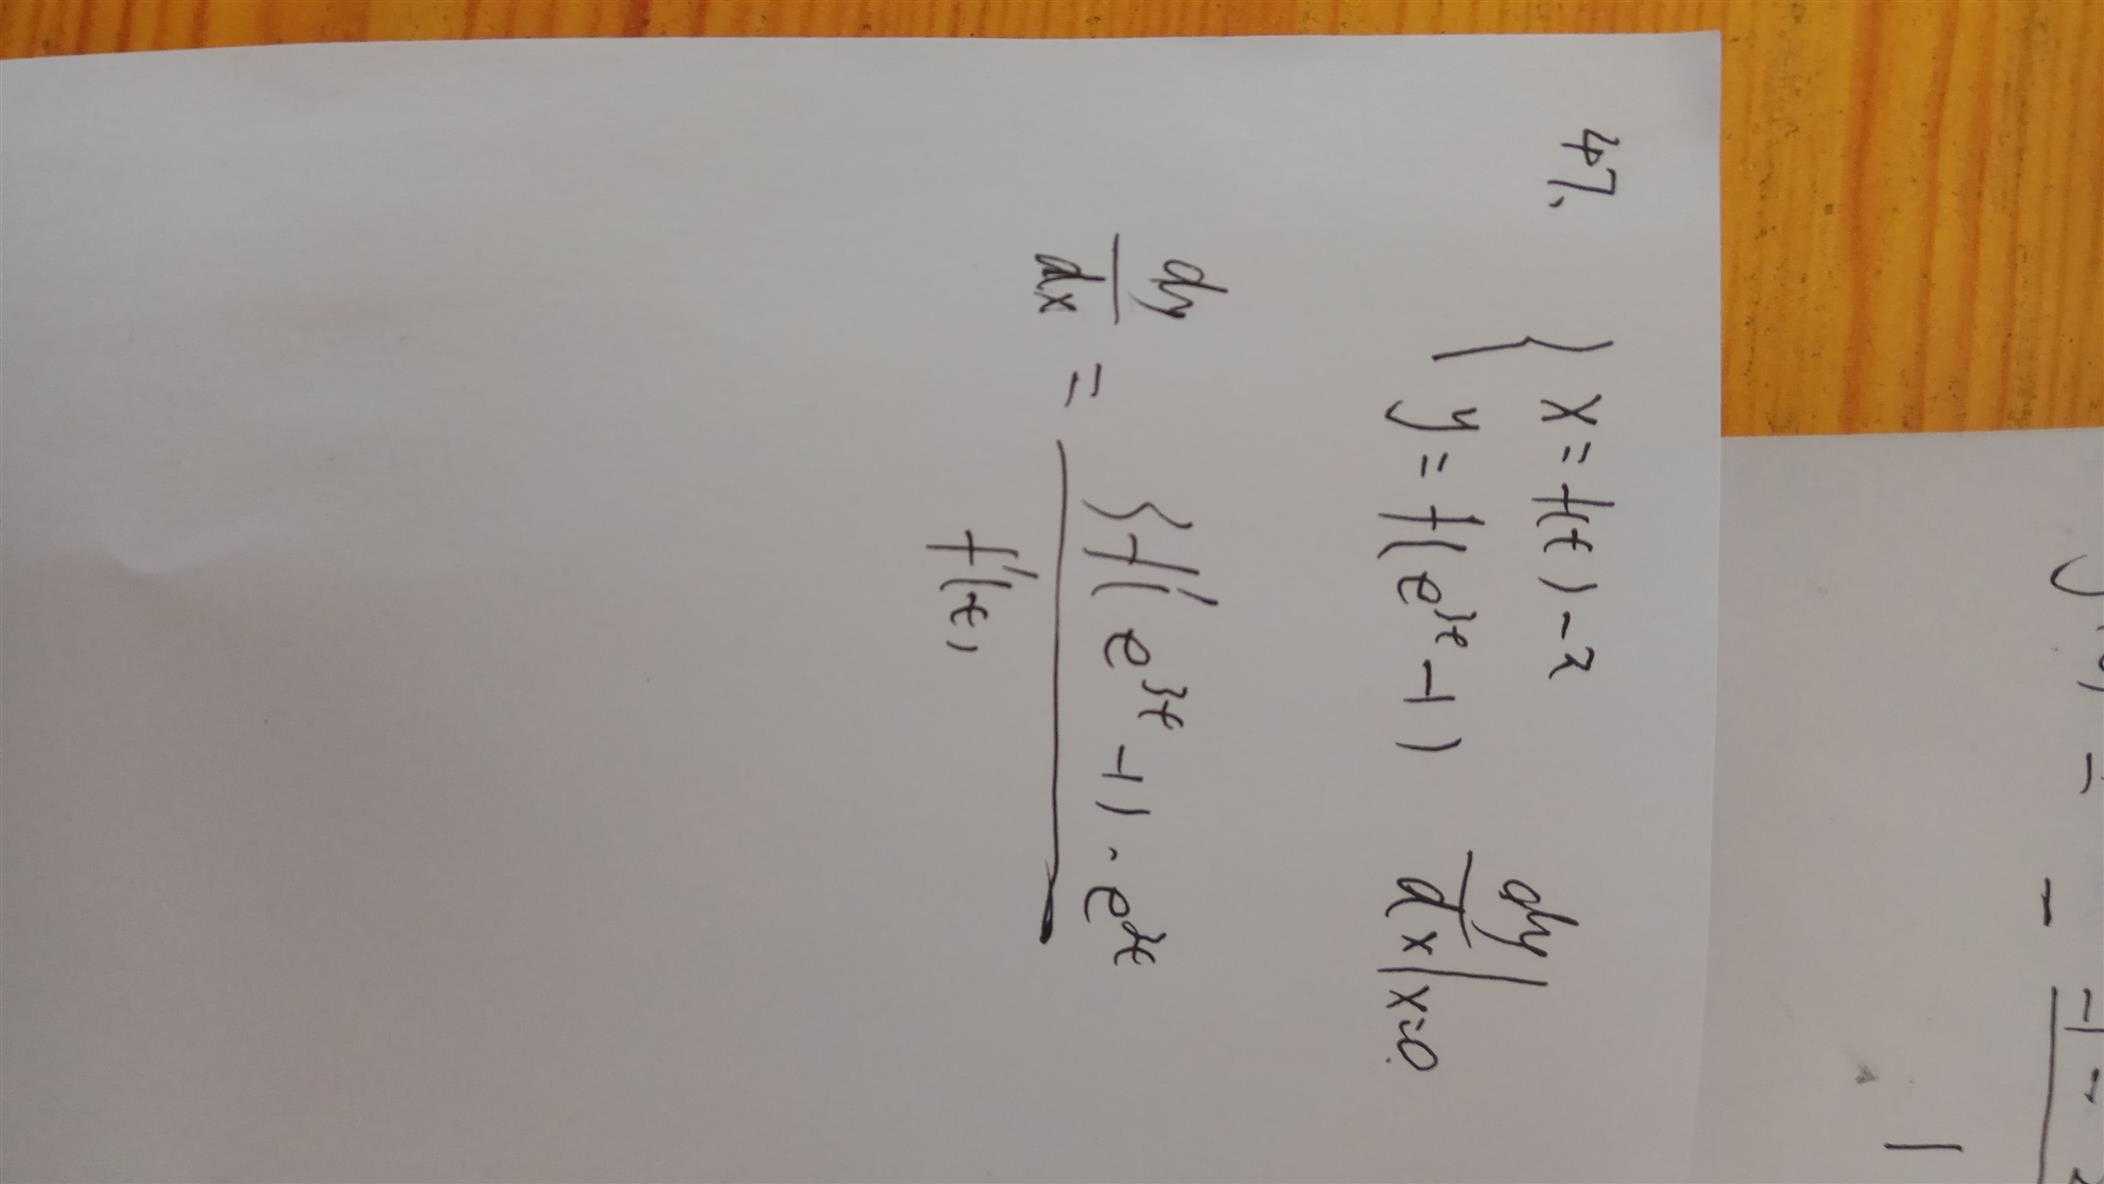 47.
{ x = f(t) - 2
y = f(e^{3t} - 1)
dy/dx |x=0
dy/dx = 3f'(e^{3t} - 1) · e^{3t} / f'(t)